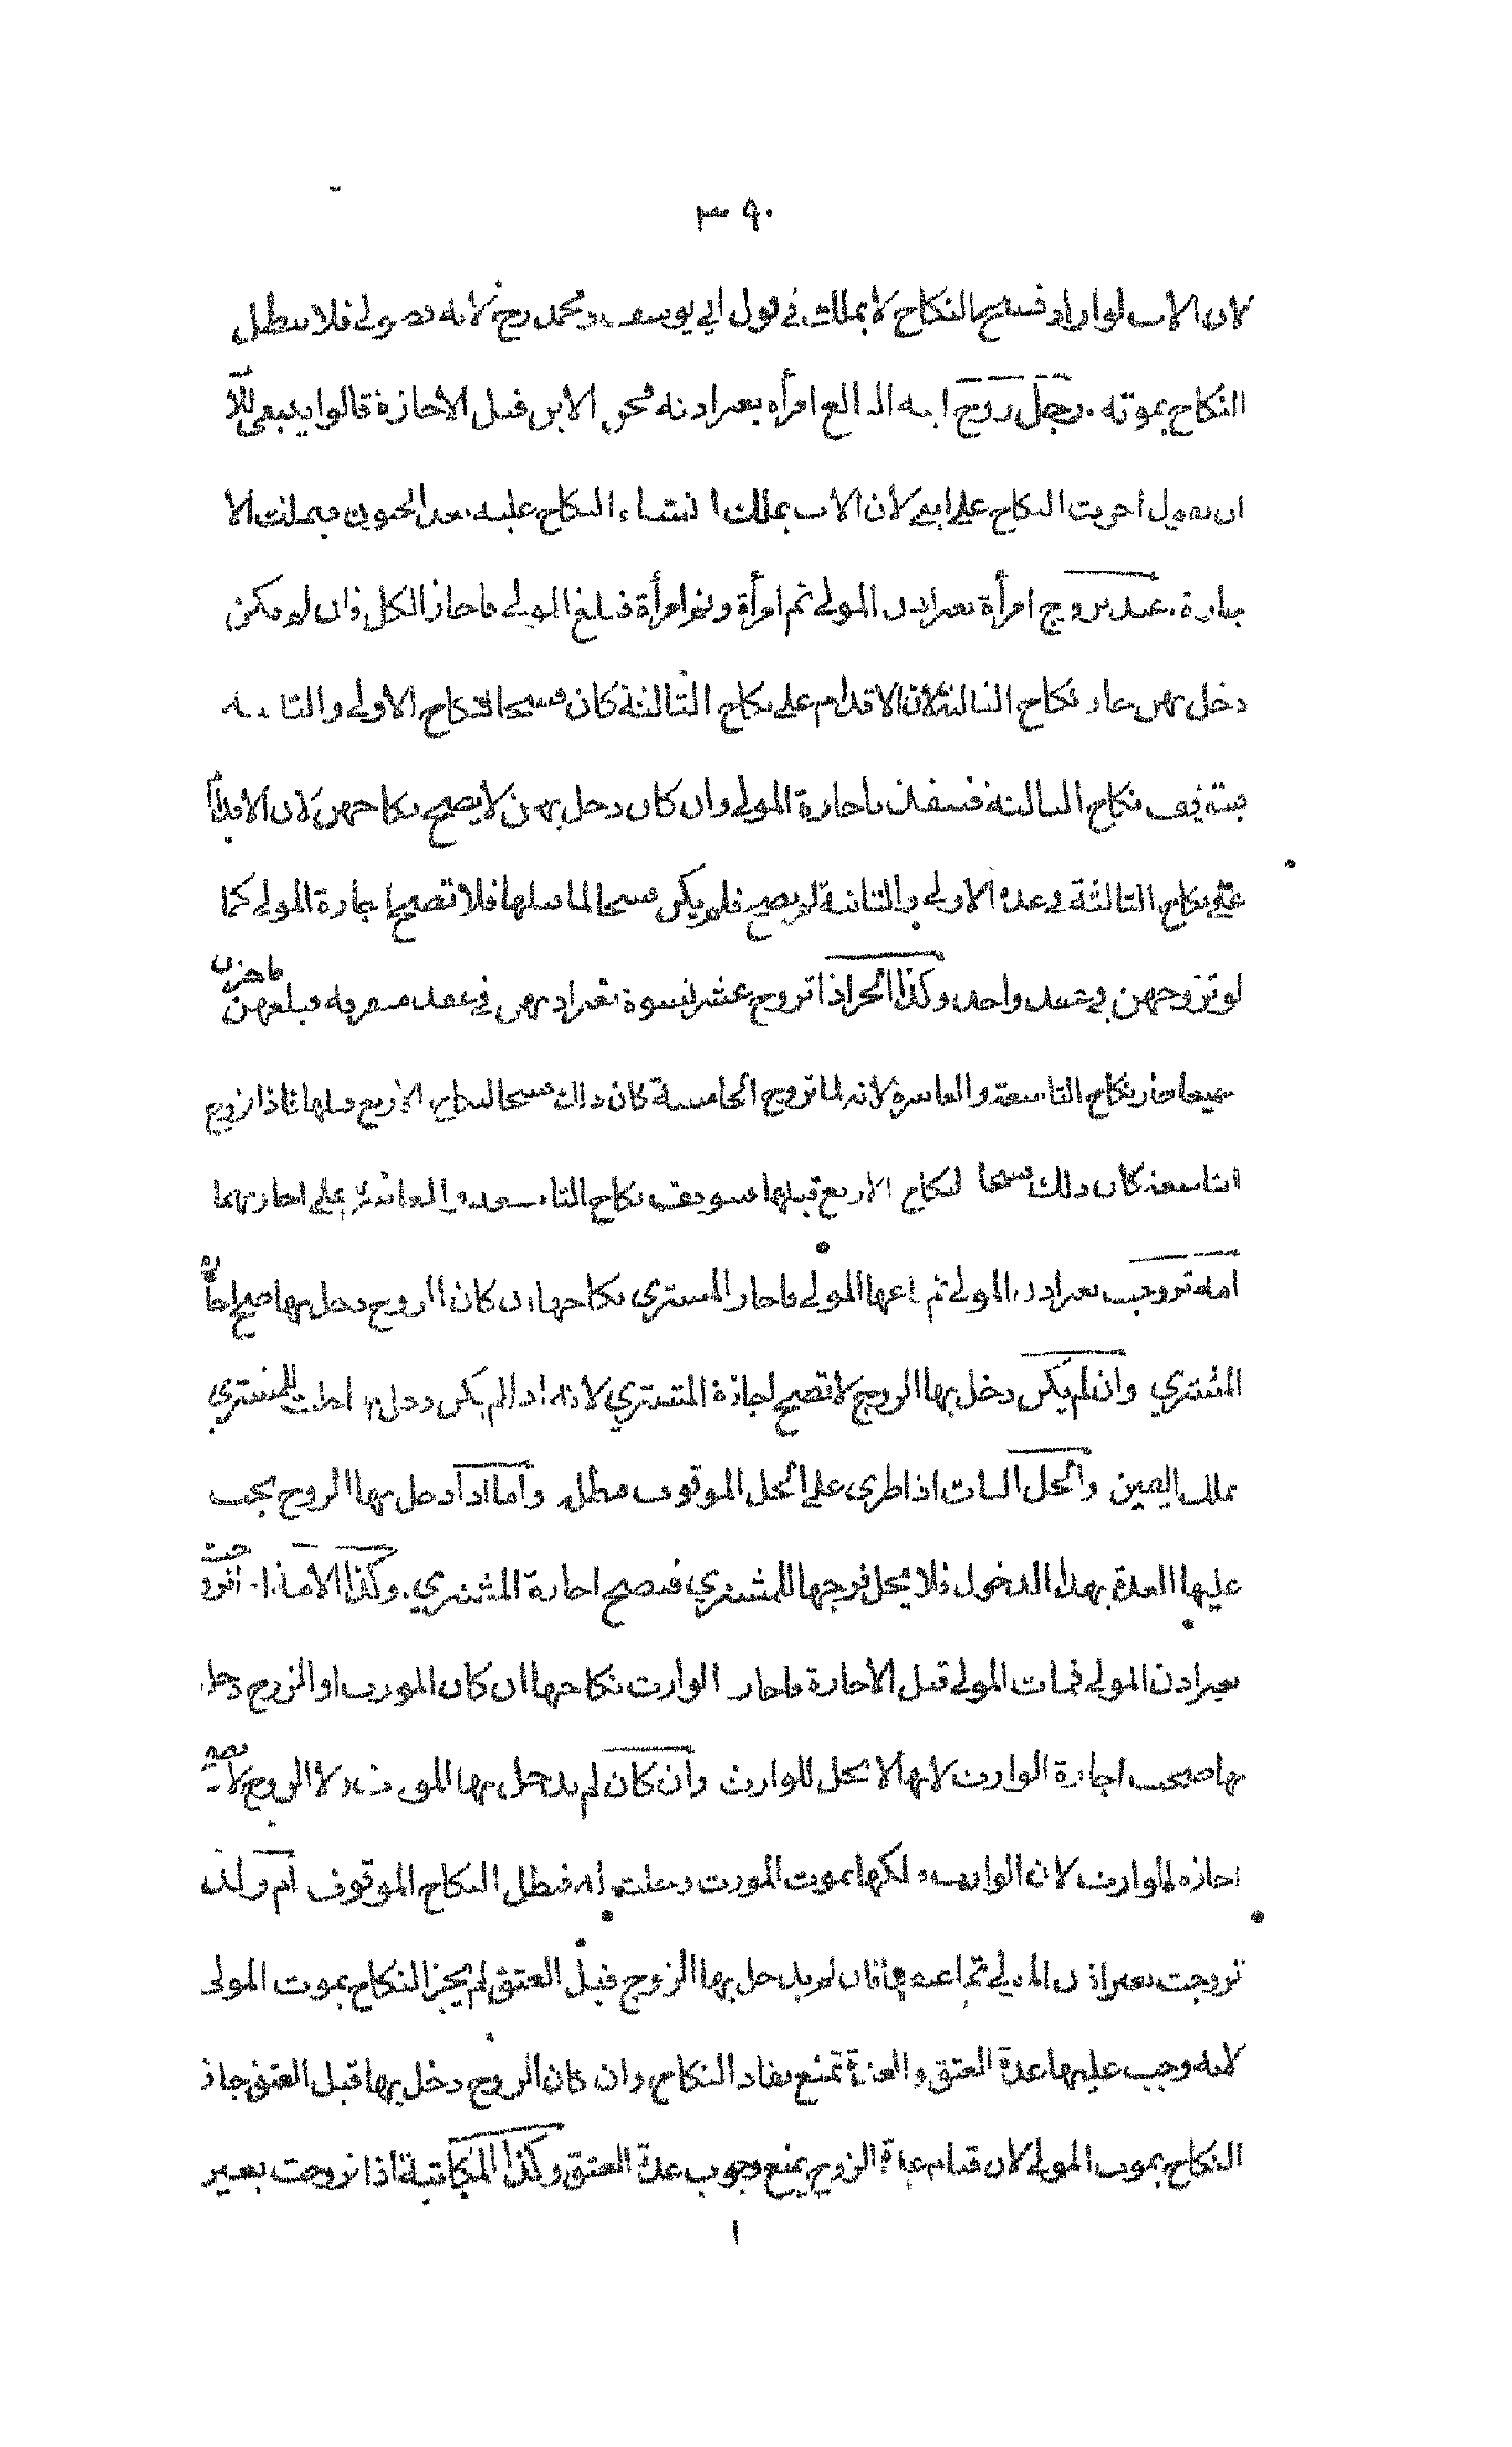 ٣٩٠
لان الاب لو اراد فسخ النكاح لا يملك في قول ابي يوسف ومحمد رح لانه فضولي فلا يبطل
النكاح بموته . رجل زوج ابنه البالغ امرأه بغير اذنه فجن الابن قبل الاجازة قالوا ينبغي للاب
ان يقول اجزت النكاح علي ابني لان الاب يملك انشاء النكاح عليه بعد الجنون فيملك الا
جازة . عبد تزوج امرأة بغير اذن المولي ثم امرأة وثم امرأة فبلغ المولي فاجاز الكل فان لم يكن
دخل بهن جاز نكاح الثالثة لان الاقدام علي نكاح الثالثة كان فسخا لنكاح الاولي والثانيه
فيتوقف نكاح الثالثة فينفذ باجازة المولي وان كان دخل بهن لا يصح نكاحهن لان الاقدام
علي نكاح الثالثة في عدة الاولي والثانية لم يصح فلم يكن فسخا لما قبلها فلا تصح اجازة المولي كما
لو تزوجهن في عقد واحد وكذا الحر اذا تزوج عشر نسوة بغير اذنهن في عقد متفرقه فبلغهن فاجزن
جميعا جاز نكاح التاسعة والعاشرة لانه لما تزوج الخامسة كان ذلك فسخا لنكاح الاربع قبلها فاذا تزوج
التاسعة كان ذلك فسخا لنكاح الاربع قبلها فيتوقف نكاح التاسعة والعاشرة علي اجازتهما
امة تزوجت بغير اذن المولي ثم باعها المولي فاجاز المشتري نكاحها ان كان الزوج دخل بها صح اجازة
المشتري وان لم يكن دخل بها الزوج لا تصح اجازة المشتري لانه اذا لم يكن دخل بها احلت للمشتري
بملك اليمين والحل البات اذا طرى علي الحل الموقوف يبطله واما اذا دخل بها الزوج يجب
عليها العدة بهذا الدخول فلا يحل فرجها للمشتري فتصح اجازة المشتري . وكذا الامة اذا تزوجت
بغير اذن المولي فمات المولي قبل الاجازة فاجاز الوارث نكاحها ان كان المورث او الزوج دخل
بها صحت اجازة الوارث لانها لا تحل للوارث وان كان لم يدخل بها المورث ولا الزوج لا تصح
اجازه الوارث لان الوارث ملكها بموت المورث وحلت له فبطل النكاح الموقوف ام ولد
تزوجت بغير اذن المولي ثم اعتقها فان لم يدخل بها الزوج قبل العتق لم يجز النكاح بموت المولى
لانه وجب عليها عدة العتق والعدة تمنع نفاذ النكاح وان كان الزوج دخل بها قبل العتق جاز
النكاح بموت المولي لان قيام عدة الزوج يمنع وجوب عدة العتق وكذا المكاتبة اذا تزوجت بغير
ا